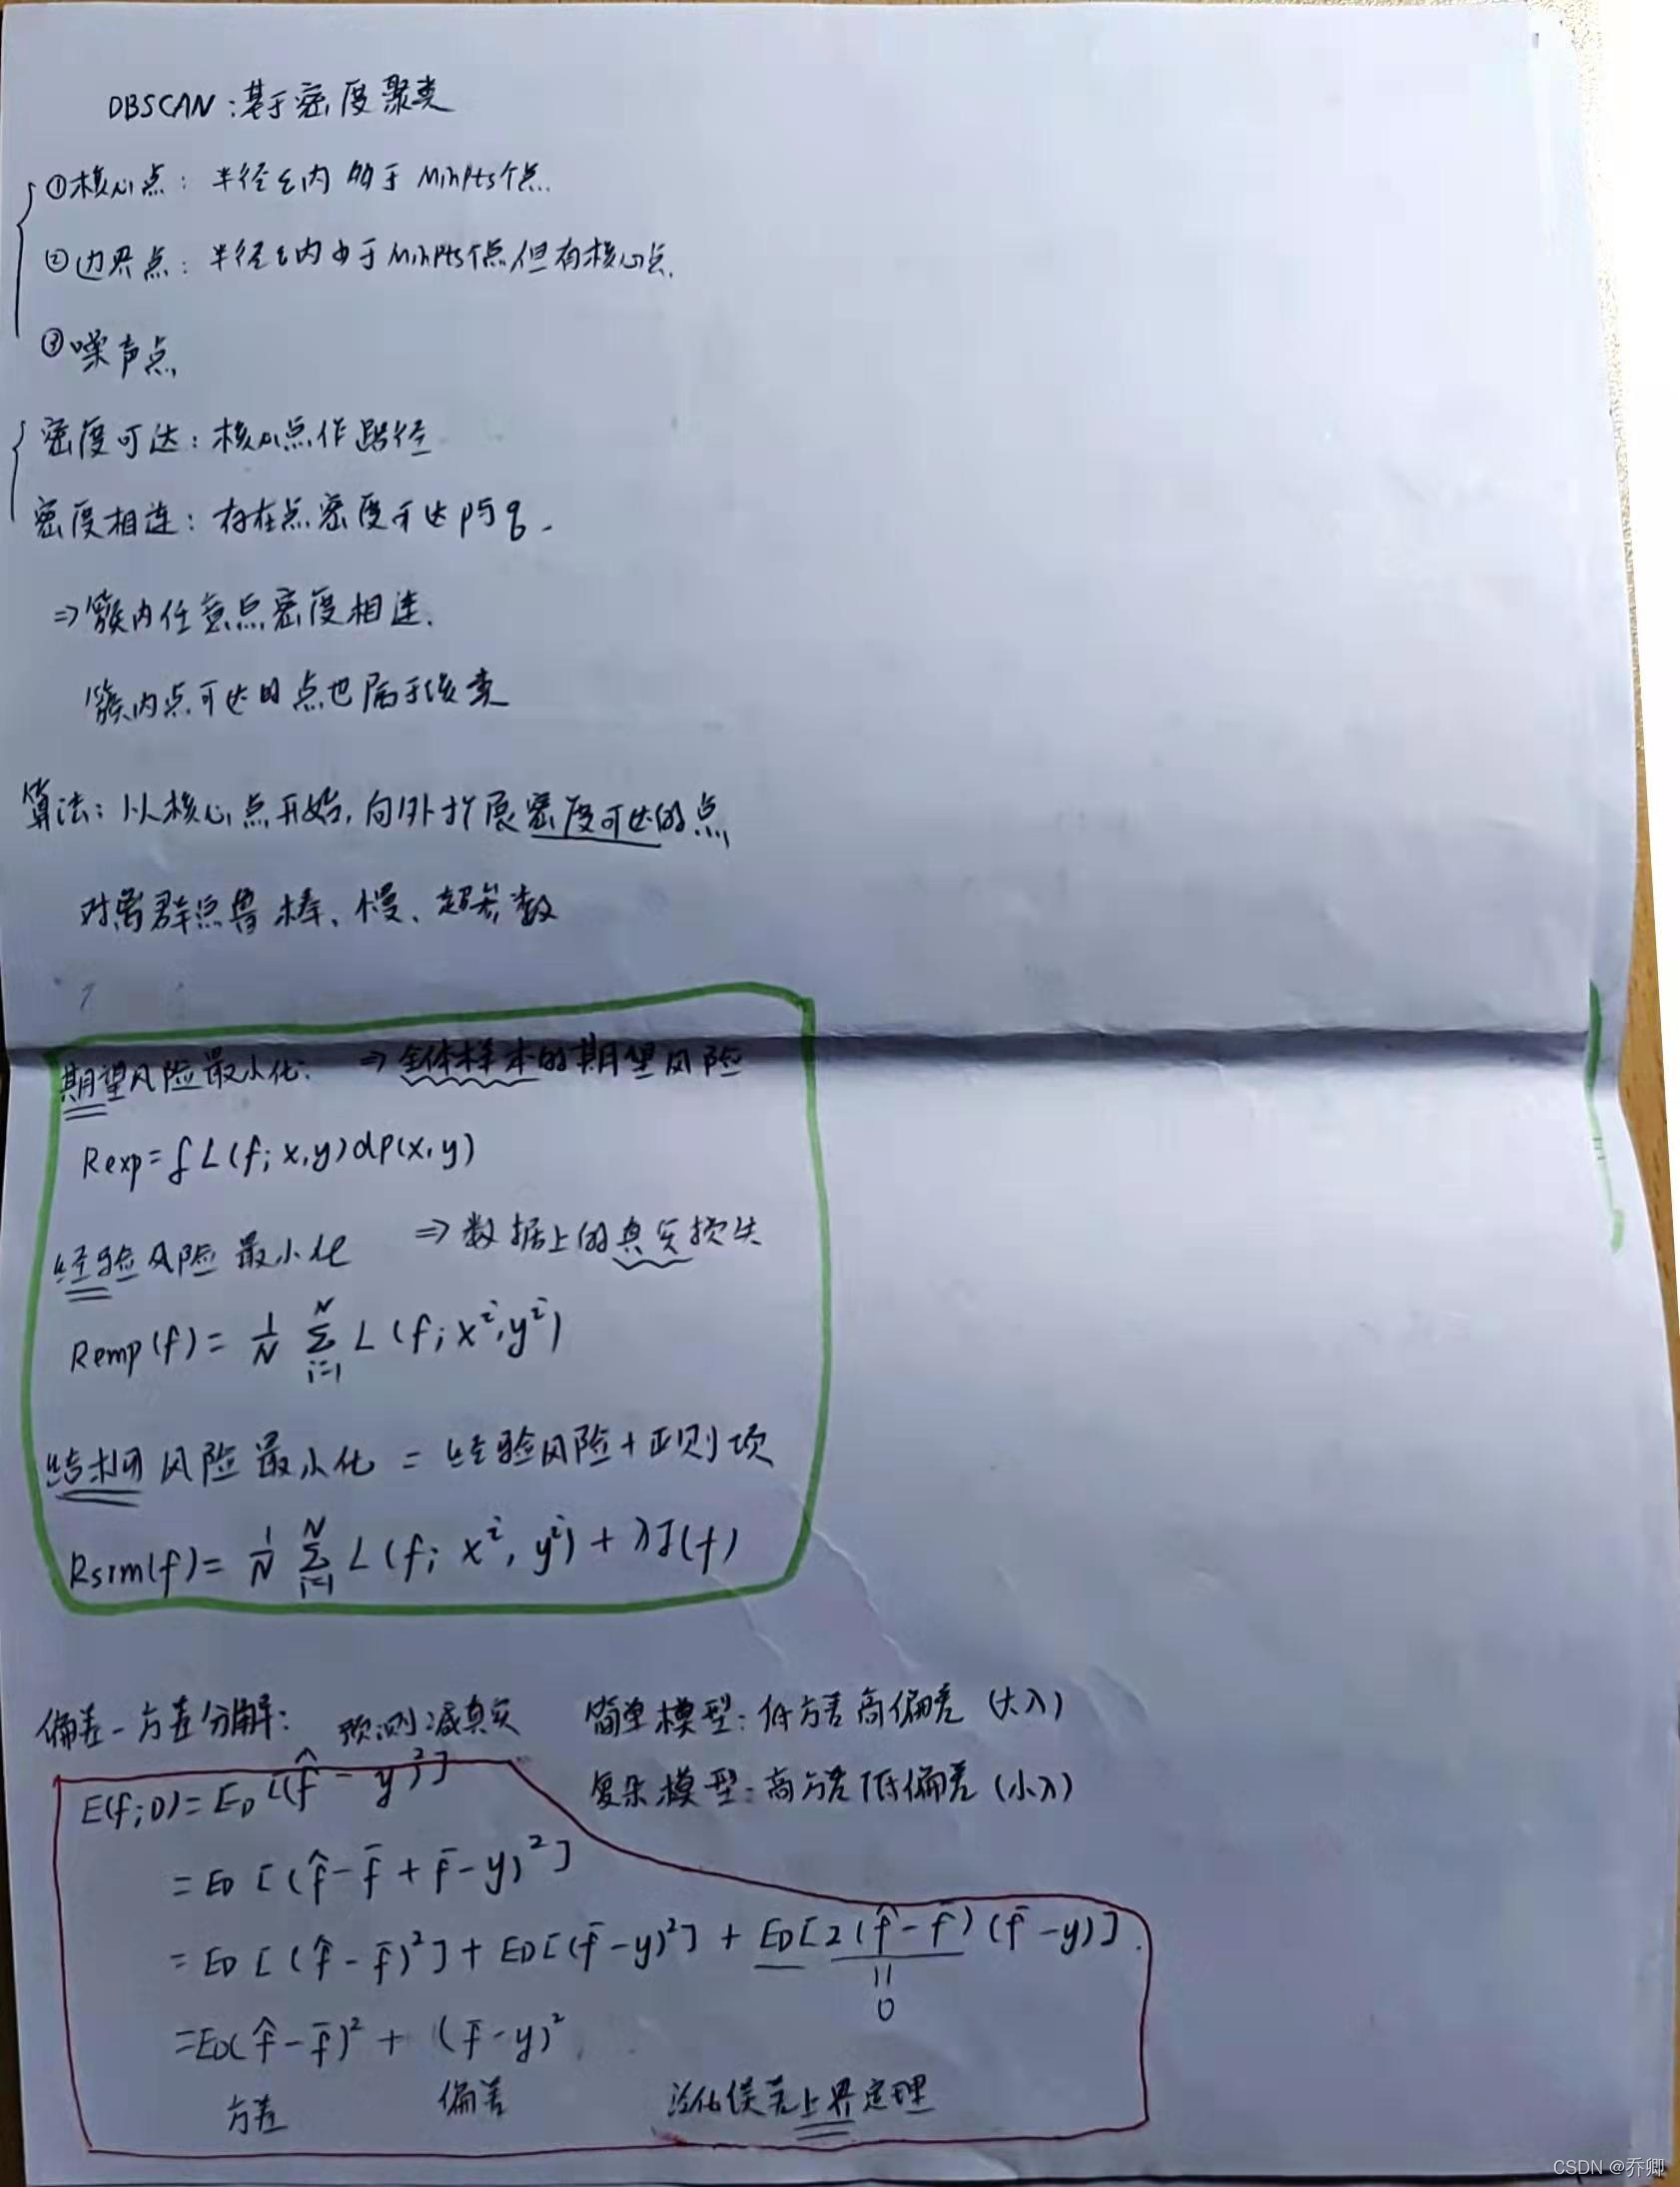 DBSCAN:基于密度聚类
①核心点: 半径ε内 多于 MinPts个点.
②边界点: 半径ε内少于MinPts个点但有核心点.
③噪声点
密度可达:核心点作路径
密度相连:存在点密度可达p与q.
⇒簇内任意点密度相连.
簇内点可达的点也属于该类
算法:从核心点开始,向外扩展密度可达的点
对离群点鲁棒、慢、超参数
期望风险最小化: ⇒全体样本的期望风险
Rexp=∫L(f;x,y)dp(x,y)
经验风险最小化 ⇒数据上的真实损失
Remp(f)= 1/N Σ_{i=1}^{N} L(f;x^i,y^i)
结构风险最小化=经验风险+正则项
Rsim(f)= 1/N Σ_{i=1}^{N} L(f;x^i,y^i)+λJ(f)
偏差-方差分解: 预测减真实 简单模型:低方差高偏差(大λ)
复杂模型:高方差低偏差(小λ)
E(f;D)=E_D[(f̂-y)²]
=E_D[(f̂-f̄+f̄-y)²]
=E_D[(f̂-f̄)²]+E_D[(f̄-y)²]+E_D[2(f̂-f̄)(f̄-y)].
=
0
=E_D(f̂-f̄)²+(f̄-y)²
方差 偏差 泛化误差上界定理
CSDN @乔卿